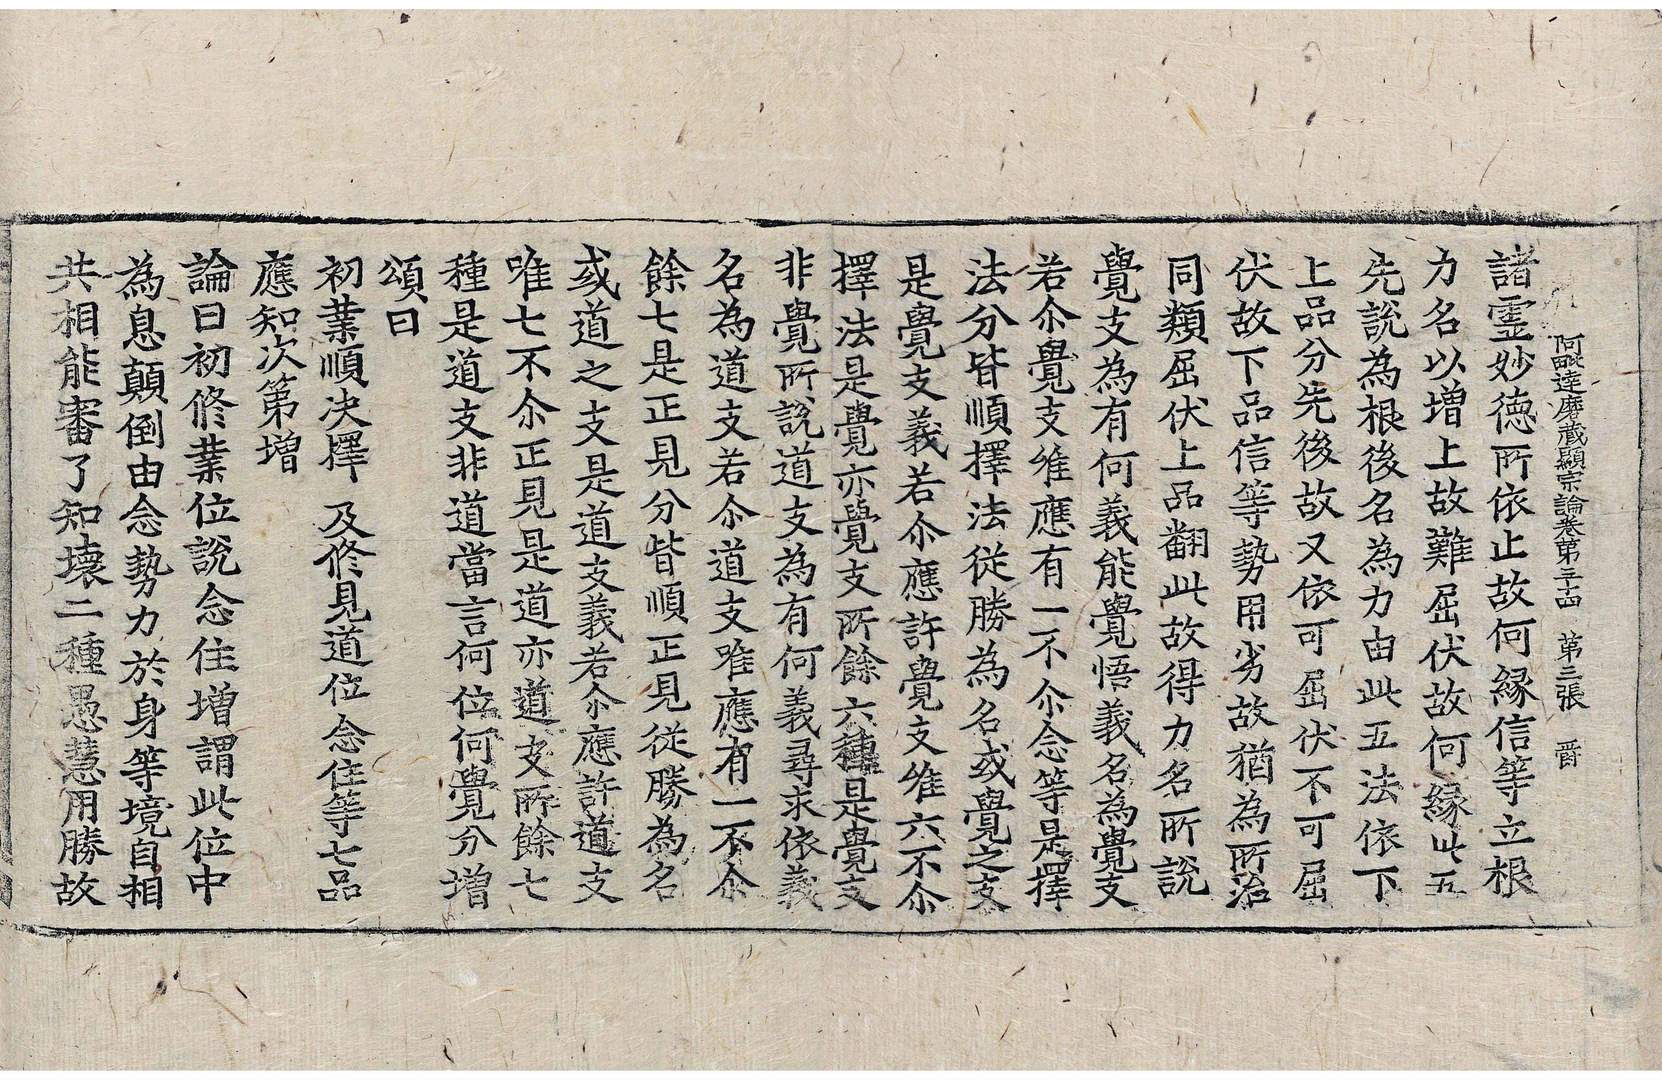 阿毗達磨藏顯宗論卷第三十四 第三張 晉
諸靈妙德所依止故何緣信等立根
力名以增上故難屈伏故何緣此五
先說為根後名為力由此五法依下
上品分先後故又依可屈伏不可屈
伏故下品信等勢用劣故猶為所治
同類屈伏上品翻此故得力名所說
覺支為有何義能覺悟義名為覺支
若尒覺支唯應有一不尒念等是擇
法分皆順擇法從勝為名或覺之支
是覺支義若尒應許覺支唯六不尒
擇法是覺亦覺支所餘六種是覺支
非覺所說道支為有何義尋求依義
名為道支若尒道支唯應有一不尒
餘七是正見分皆順正見從勝為名
或道之支是道支義若尒應許道支
唯七不尒正見是道亦道支所餘七
種是道支非道當言何位何覺分增
頌曰
初業順決擇 及修見道位 念住等七品
應知次第增
論曰初修業位說念住增謂此位中
為息顛倒由念勢力於身等境自相
共相能審了知壞二種愚慧用勝故